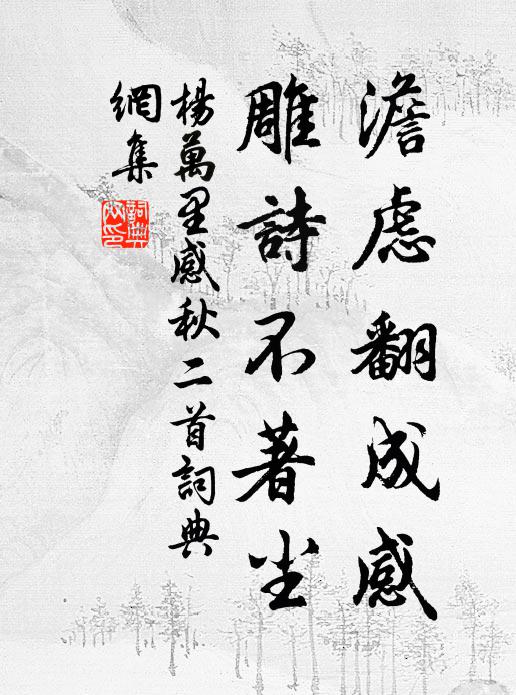 澹慮翻成感
雕詩不著尘
楊萬里感秋二首詞典
網集
詞典
网印